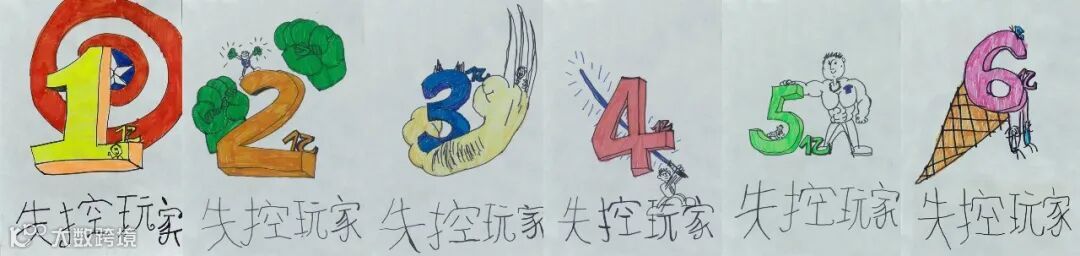 1亿
2亿
3亿
4亿
5亿
6亿
失控玩家
失控玩家
失控玩家
失控玩家
失控玩家
失控玩家
大数跨境